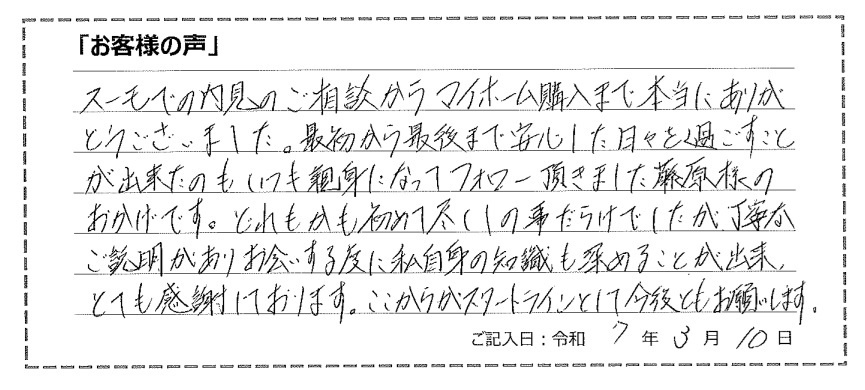 「お客様の声」
スーモでの内見のご相談からマイホーム購入まで本当にありが
とうございました。最初から最後まで安心した日々を過ごすこと
が出来たのもいつも親身になってフォロー頂きました藤原様の
おかげです。どれもかも初めて尽くしの事だらけでしたが丁寧な
ご説明がありお会いする度に私自身の知識も深めることが出来、
とても感謝しております。ここからがスタートラインとして今後ともお願いします。
ご記入日：令和 7 年 3 月 10 日